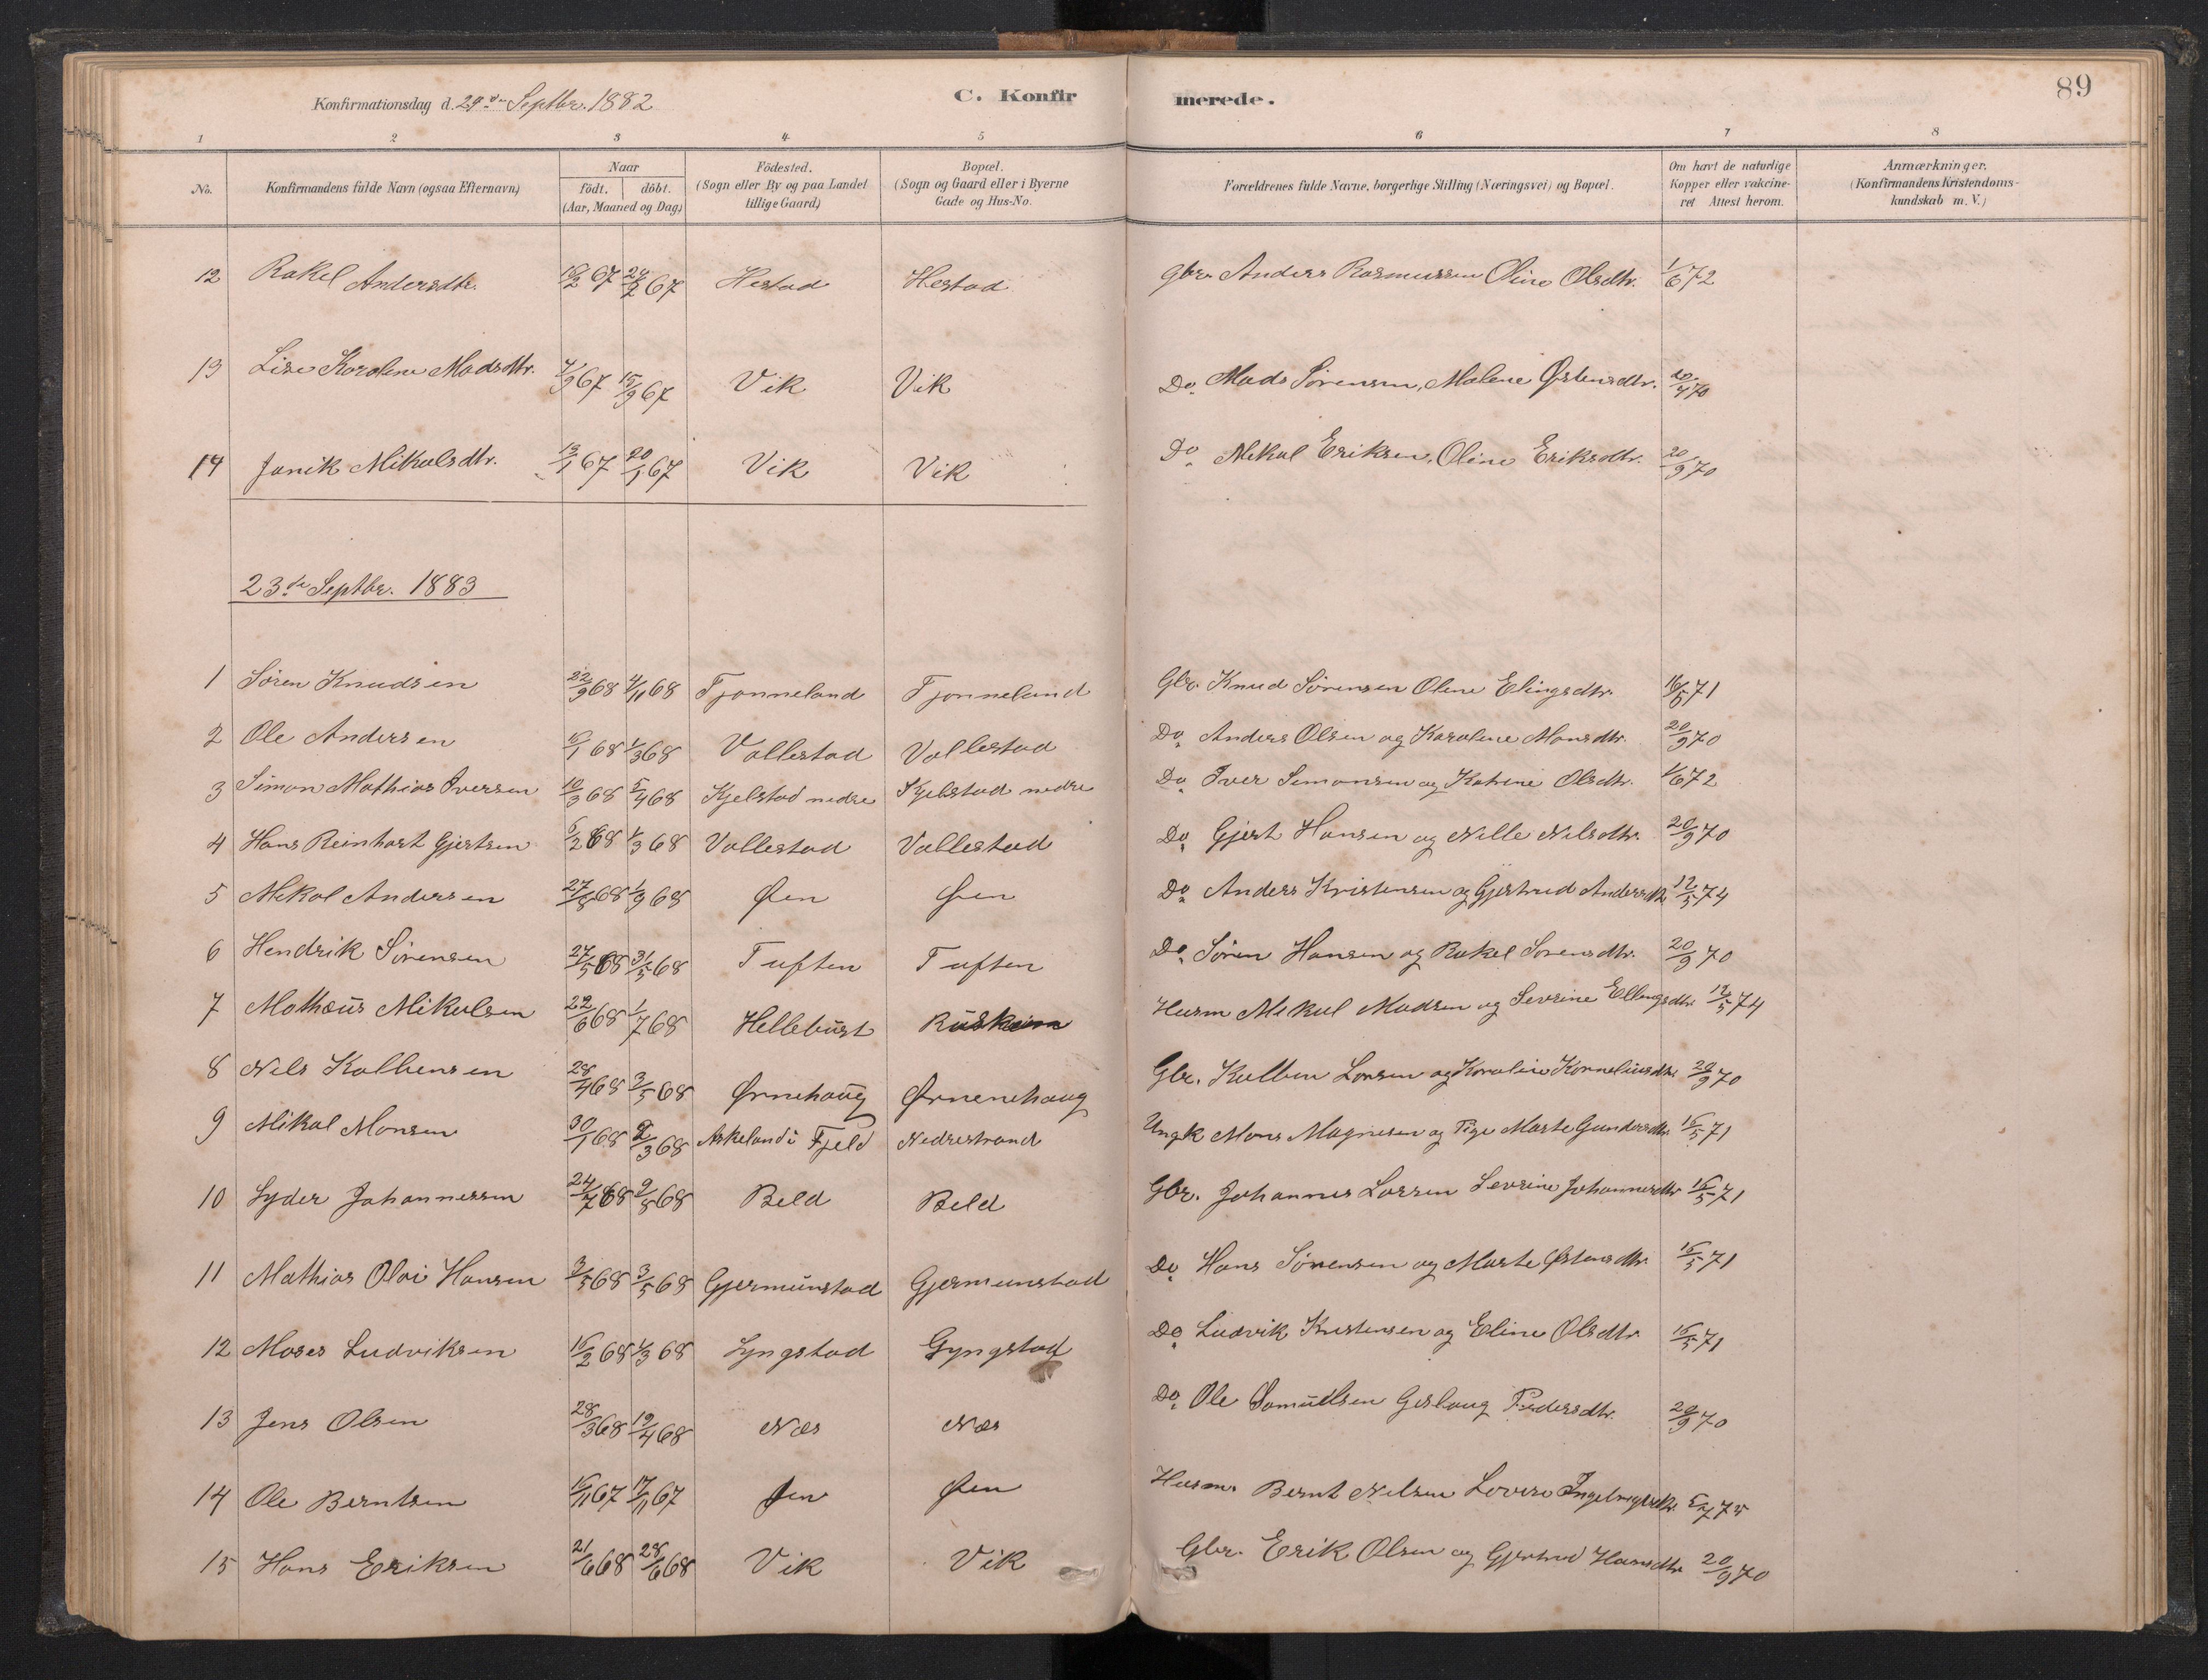 89
Konfirmationsdag d. 29de Septbr. 1882 C. Konfirmerede.
1 2 3 4 5 6 7 8
No. Konfirmandens fulde Navn (ogsaa Efternavn) Naar födt. döbt. (Aar, Maaned og Dag) Födested. (Sogn eller By og paa Landet tillige Gaard) Bopæl. (Sogn og Gaard eller i Byerne Gade og Hus-No. Forældrenes fulde Navne, borgerlige Stilling (Næringsvei) og Bopæl. Om havt de naturlige Kopper eller vakcineret Attest herom. Anmærkninger. (Konfirmandens Kristendomskundskab m. V.)
12 Rakel Andersdtr. 67 24/2 67 Hestad Hestad Gbr. Anders Rasmussen Oline Olsdtr. 1/6 72
13 Lise Karolene Madsdtr. 7/9 67 15/9 67 Vik Vik Do Mads Sørensen, Malene Østensdtr. 70
14 Janik Mikalsdtr. 13/1 67 20/1 67 Vik Vik Do Mekal Eriksen, Oline Eriksdtr. 20/9 70
23de Septbr. 1883
1 Søren Knudsen 22/9 68 4/11 68 Tjønneland Tjønneland Gbr. Knud Sørensen Olene Elingsdtr. 16/5 71
2 Ole Andersen 68 1/3 68 Vallestad Vallestad Do Anders Olsen og Karolene Monsdtr. 20/9 70
3 Simon Mathias Iversen 10/3 68 5/4 68 Kjelstad nedre Kjelstad nedre Do Iver Simonsen og Katrine Olsdtr. 1/6 72
4 Hans Reinhart Gjertsen 5/2 68 1/3 68 Vallestad Vallestad Do Gjert Hansen og Nille Nilsdtr. 20/9 70
5 Mekal Andersen 27/8 68 1/9 68 Øen Øen Do Anders Kristensen og Gjertrud Andersdtr. 12/5 74
6 Hendrik Sørensen 27/5 68 31/5 68 Tuften Tuften Do Søren Hansen og Rakel Sørensdtr. 20/9 70
7 Mathæus Mikalsen 22/6 68 1/7 68 Hellebust Husm Mekal Madsen og Sevrine Ellingsdtr. 12/5 74
8 Nils Kolbensen 28/4 68 3/5 68 Ørnehaug Ørnenehaug Gbr. Kolben Larsen og Karoline Korneliusdtr. 20/9 70
9 Mikal Monsen 30/1 68 2/3 68 Askeland i Fjeld Nedrestrand Ungk Mons Magnesen og Pige Marte Gundersdtr. 16/5 71
10 Lyder Johannessen 24/7 68 68 Beld Beld Gbr. Johannes Larsen Sevrine Johannesdtr 16/5 71
11 Mathias Olai Hansen 3/5 68 3/5 68 Gjermunstad Gjermunstad Do Hans Sørensen og Marte Østensdtr. 16/5 71
12 Moses Ludviksen 16/2 68 1/3 68 Lyngstad Gyngstad Do Ludvik Kristensen og Eline Olsdtr. 16/5 71
13 Jens Olsen 28/3 68 12/4 68 Næs Næs Do Ole Samuelsen Geslaug Pedersdtr. 20/9 70
14 Ole Berntsen 16/11 67 17/11 67 Øen Øen Husm Bernt Nelsen
15 Hans Eriksen 21/6 68 28/6 68 Vik Vik Gbr. Erik Olsen og Gjertrud Hansdtr. 20/9 70